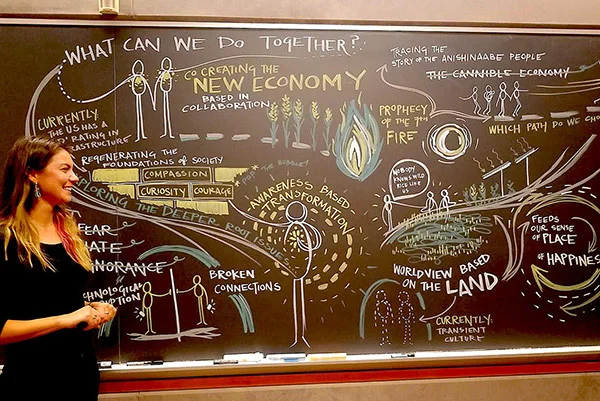 WHAT CAN WE DO TOGETHER?
CO CREATING THE
NEW ECONOMY
BASED IN
COLLABORATION
TRACING THE
STORY OF THE ANISHINAABE PEOPLE
THE CANNIBLE ECONOMY
PROPHECY
OF THE 7TH
FIRE
WHICH PATH DO WE CHO
CURRENTLY
THE US HAS A
RATING IN
REGENERATING THE
FOUNDATIONS OF SOCIETY
COMPASSION
CURIOSITY
COURAGE
POP THE BUBBLE!
NOBODY
KNOWS WILD
RICE LIKE
US
PLORING THE DEEPER ROOT ISSUES
AWARENESS BASED
TRANSFORMATION
FEAR
HATE
GNORANCE
BROKEN
CONNECTIONS
WORLDVIEW BASED
ON THE LAND
CURRENTLY:
TRANSIENT
CULTURE
FEEDS
OUR SENSE
OF PLACE
OF HAPPINES